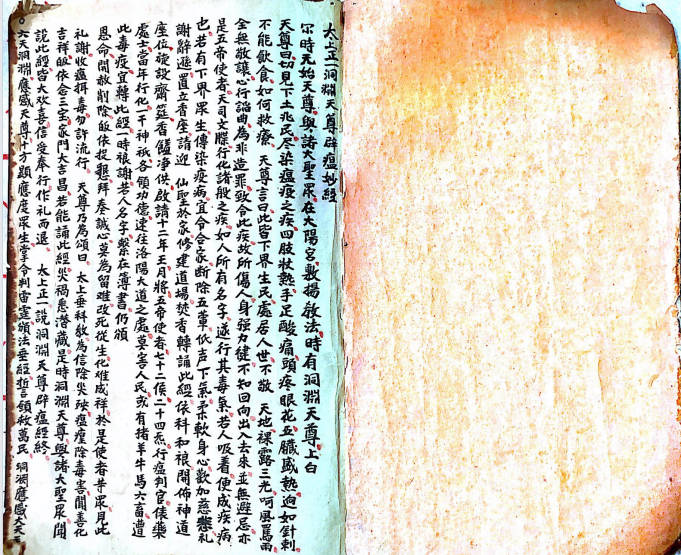 太上正一洞淵天尊辟瘟妙經
尒時元始天尊與諸大聖眾在太陽宮敷揚教法時有洞淵天尊上白
天尊曰切見下土兆民尽染瘟疫之疾四肢杖熱手足酸痛頭疼眼花五臟盛熱逈如針刺
不能飲食如何救療 天尊言曰此皆下界生民處居人世不敬 天地裸露三光呵風罵雨
全無敬讓心行謟曲為非造罪致令此疾故所傷人身强力健不知回向出入去來並無避忌亦
是五帝使者天司文牒行化諸般之疾如人所有名字遂行其毒氣若人吸着便成疾病
也若有下界眾生傳染疫病宜令合家断除五葷低声下氣柔軟身心歡加慈 礼
謝辭遜置立香座請迎 仙聖於家修建道場焚香轉誦此經依科和禳開佈神道
座位旋設齋筵香饈净供啟請十二年王月將五帝使者七十二候二十四炁行瘟判官俵藥
處士當年行化一千神祇各領功德速往洛陽大道之處莫害人民或有猪羊牛馬六畜遭
此毒疫宜轉此經一時禳謝若人名字繫在薄書仍頒
恩命開赦削除皈依捉懇拜奏誠心莫為留难改死從生化难成祥於是使者等眾見此
礼謝收瘟揖毒勿許流行 天尊乃為頌曰 太上垂科教為信除灾殃瘟瘟除毒害聞善化
吉祥皈依念三宝家門大吉昌若能誦此經灾禍悉潜藏是時洞淵天尊與諸大聖眾聞
說此經皆大欢喜信受奉行作礼而退 太上正一說洞淵天尊辟瘟經終
六天洞淵應感天尊十方顯應度眾生掌令判宙霆頒法垂經誓領救萬民 洞渕應感大天